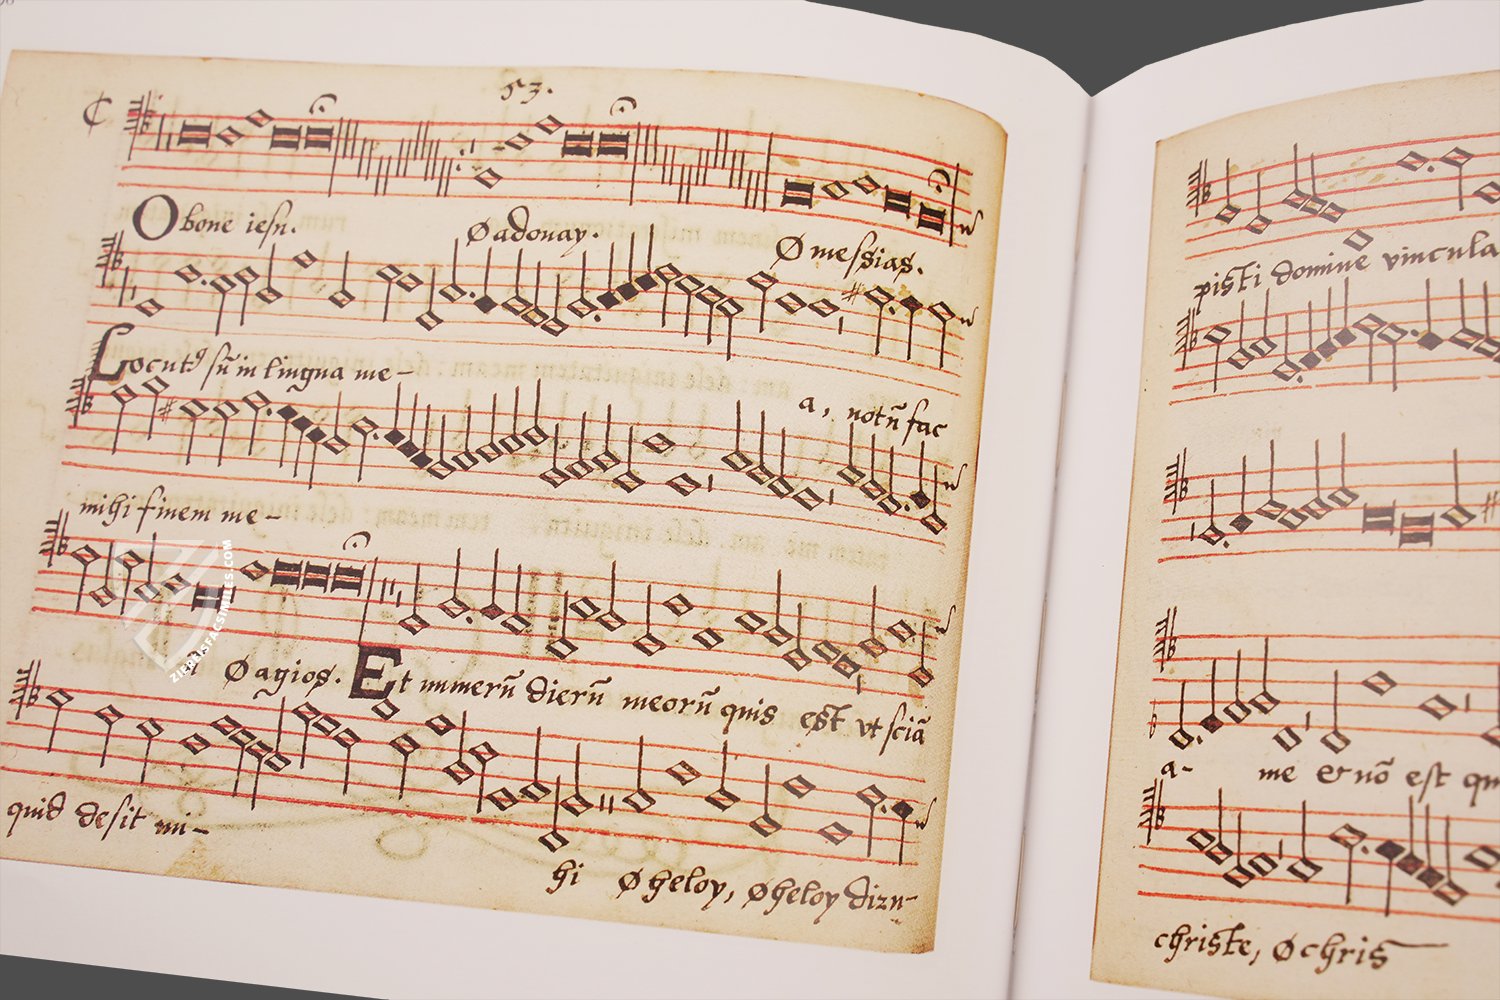 53.
O bone iesu. O adonay. O messias.
Locutꝰ sũ in lingua me-
a, notũ fac
mihi finem me-
O agios. Et numerũ dierũ meorũ quis est vt sciã
quid desit mi-
hi O heloy, O heloy dizu-
pisti domine vincula
a- me et nõ est qu
christe, O chris
ZIEREISFACSIMILES.COM